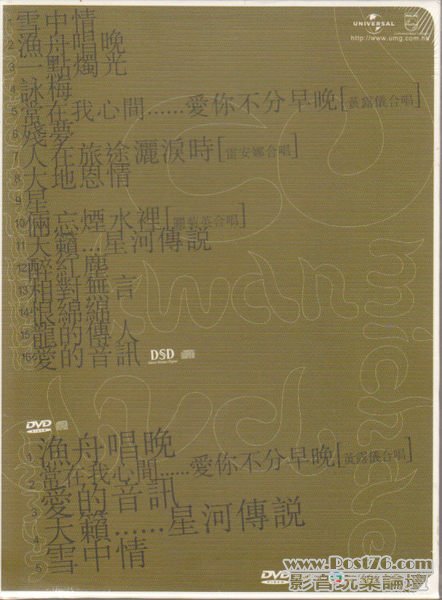 UNIVERSAL
PHILIPS
http://www.umg.com.hk
1 雪中情
2 漁舟唱晚
3 一點燭光
4 詠梅
5 常在我心間......愛你不分早晚[黃露儀合唱]
6 殘夢
7 人在旅途灑淚時[雷安娜合唱]
8 大地恩情
9 星
10 倆忘煙水裡[關菊英合唱]
11 天籟...星河傳說
12 醉紅塵
13 相對無言
14 恨綿綿
15 龍的傳人
16 愛的音訊
DSD
kwan
michael
dvd
DVD
VIDEO
1 漁舟唱晚
2 常在我心間......愛你不分早晚[黃露儀合唱]
3 愛的音訊
4 天籟......星河傳說
5 雪中情
DVD
www.Post76.com
影音玩樂論壇